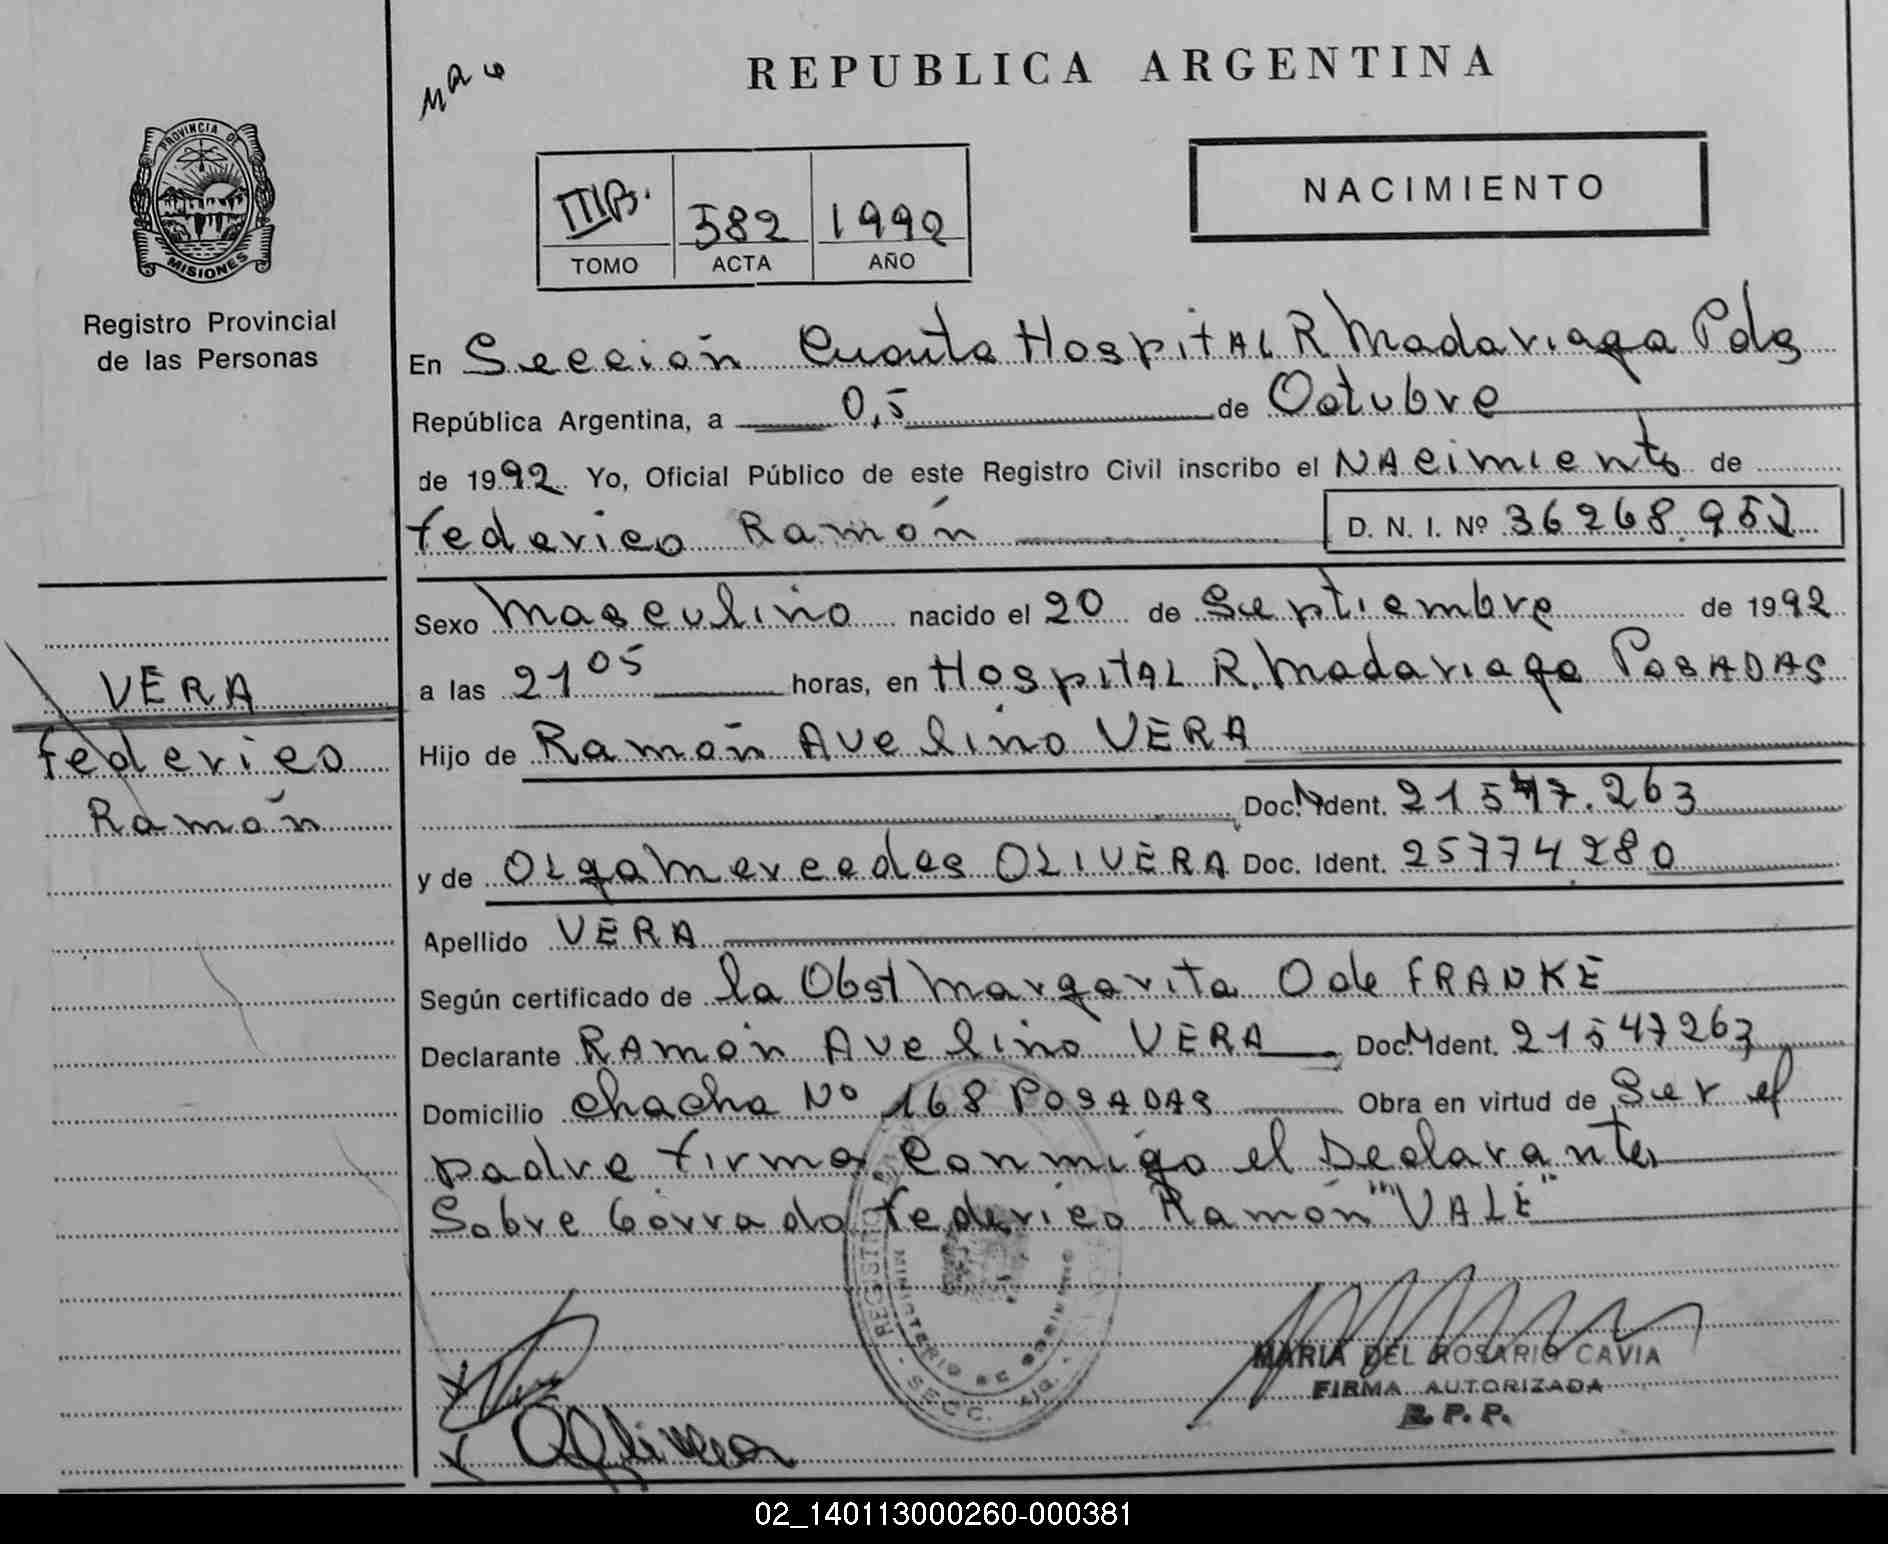 REPUBLICA ARGENTINA
PROVINCIA DE
MISIONES
Registro Provincial
de las Personas
IIIB. 582 1992
TOMO ACTA AÑO
NACIMIENTO
En Sección Cuarta Hospital R Madariaga Pdas
República Argentina, a 05 de Octubre
de 1992. Yo, Oficial Público de este Registro Civil inscribo el NAcimiento de
Federico Ramón D. N. I. Nº 36268.952
Sexo Masculino nacido el 20 de Septiembre de 1992
a las 21 05 horas, en Hospital R. Madariaga POSADAS
Hijo de Ramón Avelino VERA
Doc. Ident. 21547.263
y de Olga Mercedes OLIVERA Doc. Ident. 25774.280
Apellido VERA
Según certificado de la Obst Margarita O de FRANKE
Declarante Ramón Avelino VERA Doc. Ident. 21547263
Domicilio chacha Nº 168 POSADAS Obra en virtud de Ser el
padre firma conmigo el Declarante
Sobre borrado Federico Ramón "VALE"
VERA
Federico
Ramón
MINISTERIO DE
SECC.
MARIA DEL ROSARIO CAVIA
FIRMA AUTORIZADA
R. P. P.
02_140113000260-000381